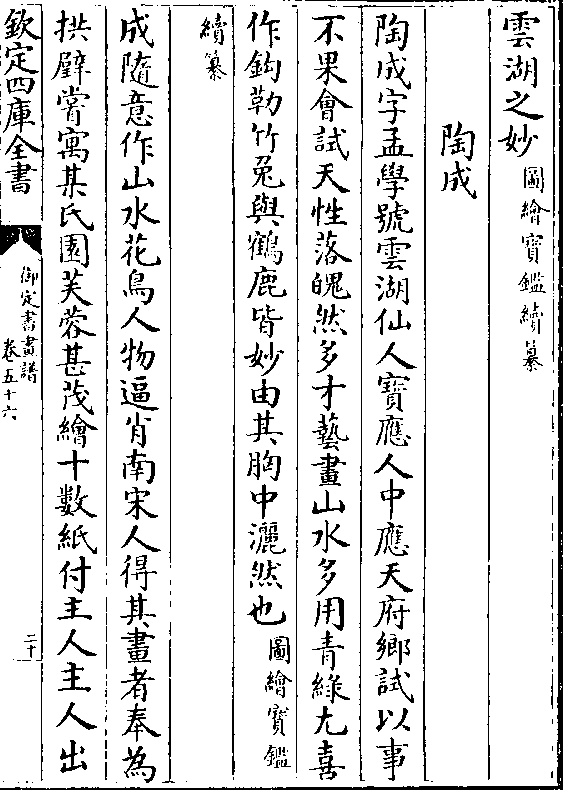 雲湖之妙圖繪寶鑑續纂
陶成
陶成字孟學號雲湖仙人寶應人中應天府鄉試以事
不果會試天性落魄然多才藝畫山水多用青綠尤喜
作鈎勒竹兎與鶴鹿皆妙由其胸中灑然也圖繪寶鑑
續纂
成隨意作山水花鳥人物逼肖南宋人得其畫者奉為
拱璧嘗寓某氏園芙蓉甚茂繪十數紙付主人主人出
欽定四庫全書
御定書畫譜
卷五十六
二十